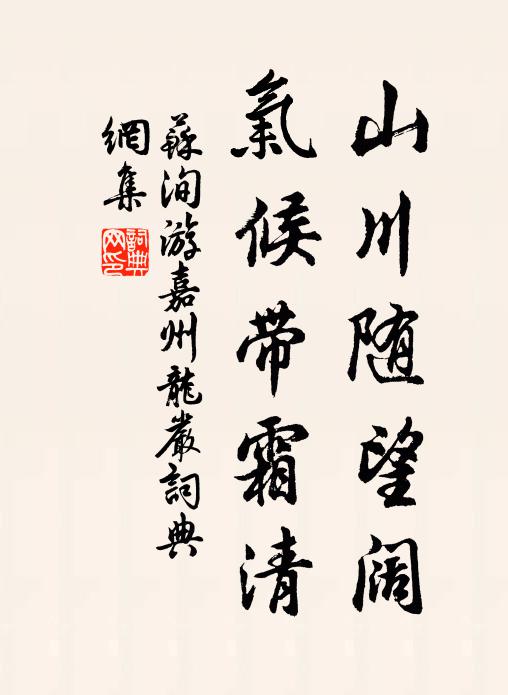 山川随望阔
氣候带霜清
蘇洵游嘉州龍巖詞典
網集
詞典
网印